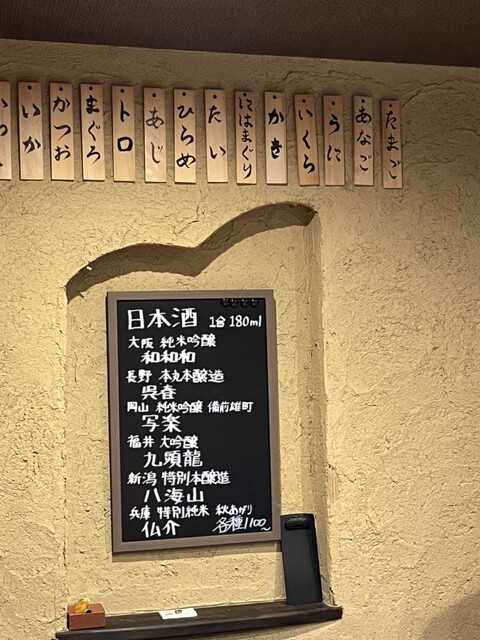 たまご
あなご
うに
いくら
かき
にはまぐり
たい
ひらめ
あじ
トロ
まぐろ
かつお
いか
日本酒 1合 180ml
大阪 純米吟醸
和和和
長野 本丸本醸造
呉春
岡山 純米吟醸 備前雄町
写楽
福井 大吟醸
九頭龍
新潟 特別本醸造
八海山
兵庫 特別純米 秋あがり
仏介 各種1100~